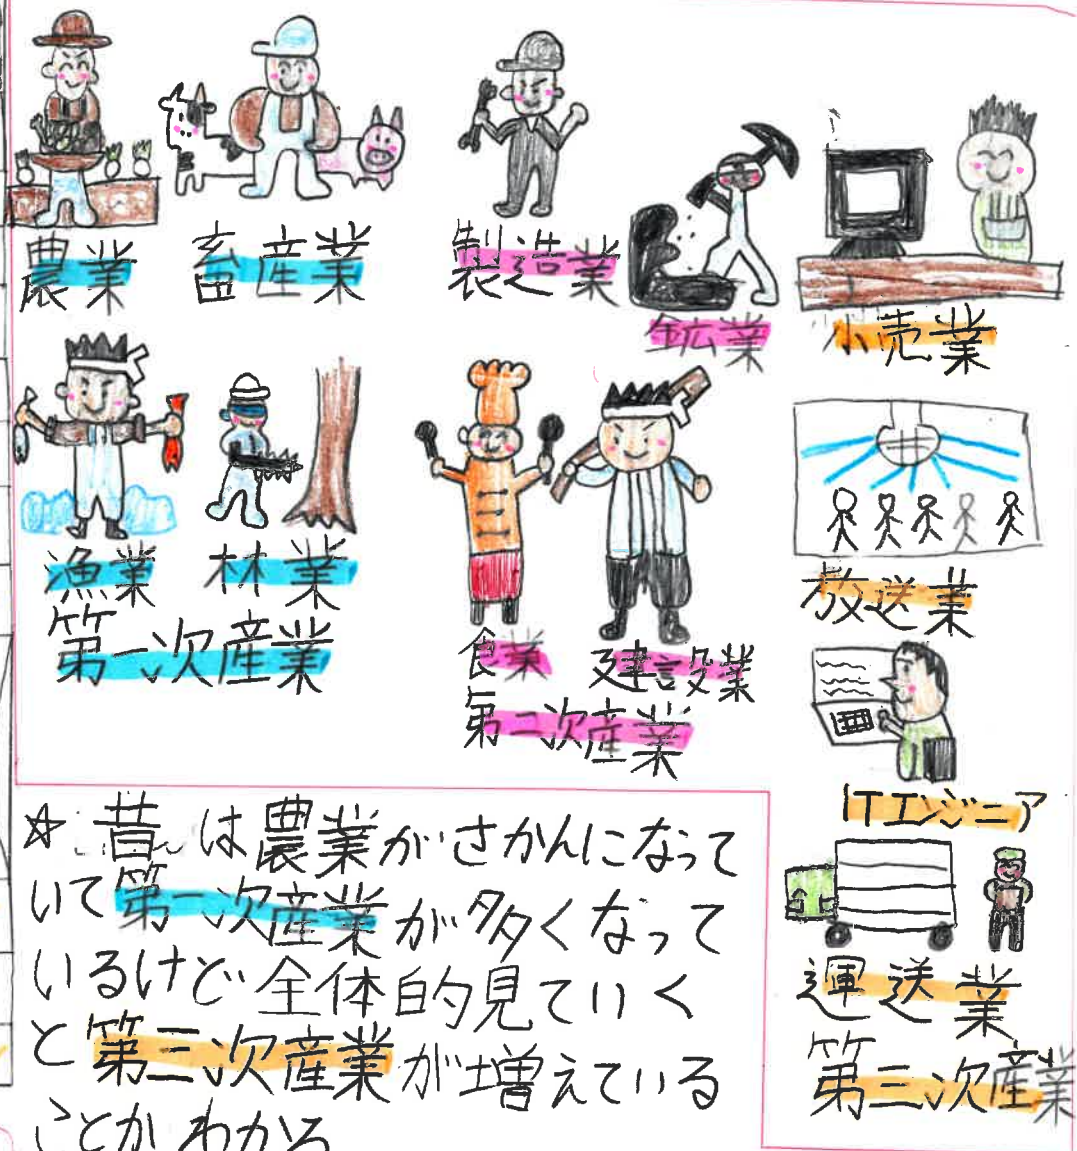 農業
畜産業
製造業
鉱業
小売業
漁業
林業
第一次産業
食業
建設業
第二次産業
放送業
ITエンジニア
運送業
第三次産業
☆昔は農業がさかんになって
いて第一次産業が多くなって
いるけど全体的見ていく
と第三次産業が増えている
ことがわかる